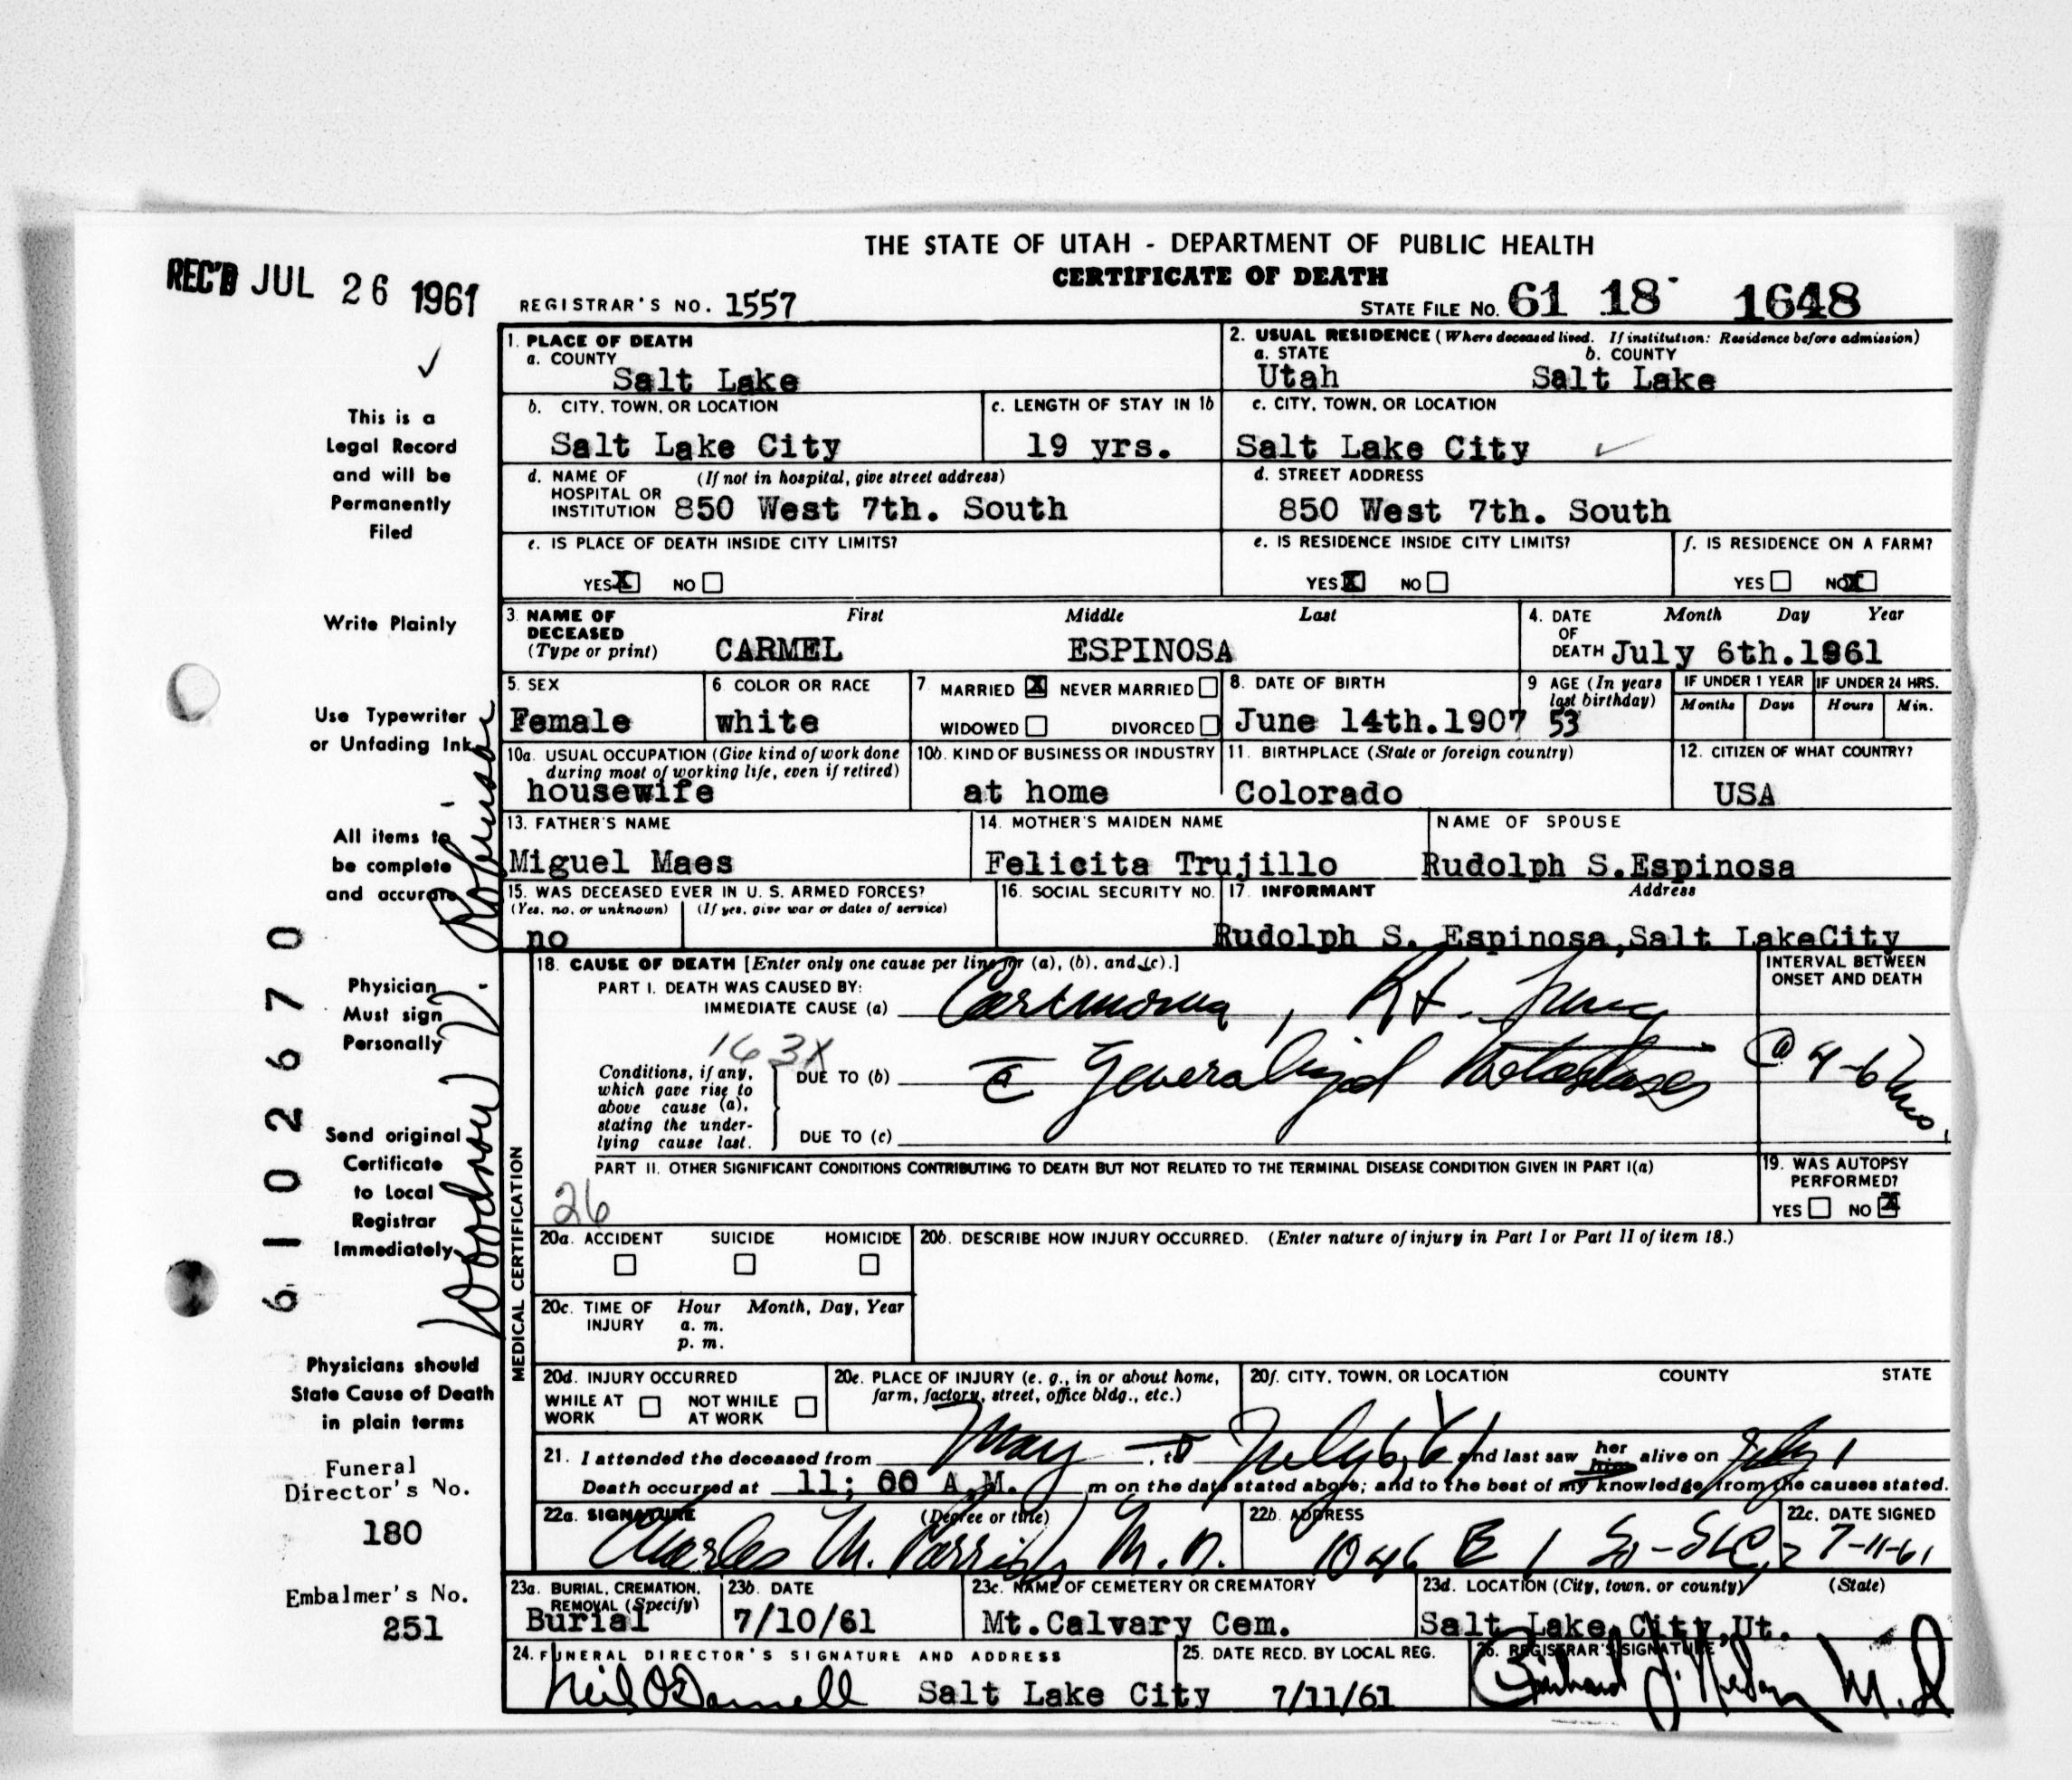 THE STATE OF UTAH - DEPARTMENT OF PUBLIC HEALTH
CERTIFICATE OF DEATH
REC'D JUL 26 1961
REGISTRAR'S NO. 1557
STATE FILE NO. 61 18 1648
1. PLACE OF DEATH
a. COUNTY
Salt Lake
2. USUAL RESIDENCE (Where deceased lived. If institution: Residence before admission)
a. STATE b. COUNTY
Utah Salt Lake
b. CITY, TOWN, OR LOCATION
Salt Lake City
c. LENGTH OF STAY IN 1b
19 yrs.
c. CITY, TOWN, OR LOCATION
Salt Lake City
d. NAME OF HOSPITAL OR INSTITUTION (If not in hospital, give street address)
850 West 7th. South
d. STREET ADDRESS
850 West 7th. South
e. IS PLACE OF DEATH INSIDE CITY LIMITS?
YES X NO
e. IS RESIDENCE INSIDE CITY LIMITS?
YES X NO
f. IS RESIDENCE ON A FARM?
YES NO X
3. NAME OF DECEASED (Type or print)
First Middle Last
CARMEL ESPINOSA
4. DATE OF DEATH
Month Day Year
July 6th.1961
5. SEX
Female
6. COLOR OR RACE
white
7. MARRIED X NEVER MARRIED
WIDOWED DIVORCED
8. DATE OF BIRTH
June 14th.1907
9 AGE (In years last birthday)
53
IF UNDER 1 YEAR
Months Days
IF UNDER 24 HRS.
Hours Min.
10a. USUAL OCCUPATION (Give kind of work done during most of working life, even if retired)
housewife
10b. KIND OF BUSINESS OR INDUSTRY
at home
11. BIRTHPLACE (State or foreign country)
Colorado
12. CITIZEN OF WHAT COUNTRY?
USA
13. FATHER'S NAME
Miguel Maes
14. MOTHER'S MAIDEN NAME
Felicita Trujillo
NAME OF SPOUSE
Rudolph S.Espinosa
15. WAS DECEASED EVER IN U. S. ARMED FORCES?
(Yes, no, or unknown) (If yes, give war or dates of service)
no
16. SOCIAL SECURITY NO.
17. INFORMANT Address
Rudolph S. Espinosa,Salt LakeCity
MEDICAL CERTIFICATION
18. CAUSE OF DEATH [Enter only one cause per line for (a), (b), and (c).]
PART I. DEATH WAS CAUSED BY:
IMMEDIATE CAUSE (a) Carcinoma, Rt. Lung
163X
Conditions, if any, which gave rise to above cause (a), stating the underlying cause last.
DUE TO (b) c̄ Generalized Metastases
DUE TO (c)
INTERVAL BETWEEN ONSET AND DEATH
@ 4-6 mos.
PART II. OTHER SIGNIFICANT CONDITIONS CONTRIBUTING TO DEATH BUT NOT RELATED TO THE TERMINAL DISEASE CONDITION GIVEN IN PART I(a)
26
19. WAS AUTOPSY PERFORMED?
YES NO X
20a. ACCIDENT SUICIDE HOMICIDE
20b. DESCRIBE HOW INJURY OCCURRED. (Enter nature of injury in Part I or Part II of item 18.)
20c. TIME OF INJURY Hour Month, Day, Year
a. m.
p. m.
20d. INJURY OCCURRED
WHILE AT WORK NOT WHILE AT WORK
20e. PLACE OF INJURY (e. g., in or about home, farm, factory, street, office bldg., etc.)
20f. CITY, TOWN, OR LOCATION COUNTY STATE
21. I attended the deceased from May to July 6, 61 and last saw her him alive on July 1
Death occurred at 11; 00 A.M. m on the date stated above; and to the best of my knowledge, from the causes stated.
22a. SIGNATURE (Degree or title)
Charles M. Parrish M.D.
22b. ADDRESS
1046 E 1 So-SLC
22c. DATE SIGNED
7-11-61
23a. BURIAL, CREMATION, REMOVAL (Specify)
Burial
23b. DATE
7/10/61
23c. NAME OF CEMETERY OR CREMATORY
Mt.Calvary Cem.
23d. LOCATION (City, town, or county) (State)
Salt Lake City,Ut.
24. FUNERAL DIRECTOR'S SIGNATURE AND ADDRESS
Neil O'Donnell Salt Lake City
25. DATE RECD. BY LOCAL REG.
7/11/61
26. REGISTRAR'S SIGNATURE
M.D
This is a
Legal Record
and will be
Permanently
Filed
Write Plainly
Use Typewriter
or Unfading Ink
All items to
be complete
and accurate
Physician
Must sign
Personally
Send original
Certificate
to Local
Registrar
Immediately
Physicians should
State Cause of Death
in plain terms
Funeral
Director's No.
180
Embalmer's No.
251
6102670
Woodrow D. Robinson